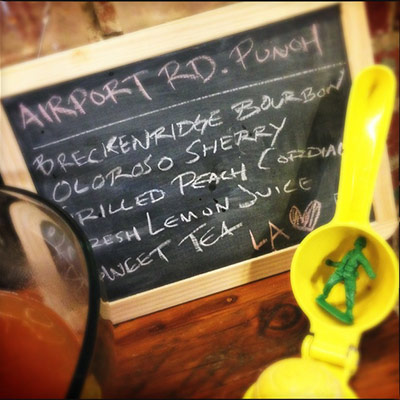 AIRPORT RD. PUNCH
BRECKENRIDGE BOURBON
OLOROSO SHERRY
GRILLED PEACH CORDIAL
FRESH LEMON JUICE
SWEET TEA
LA